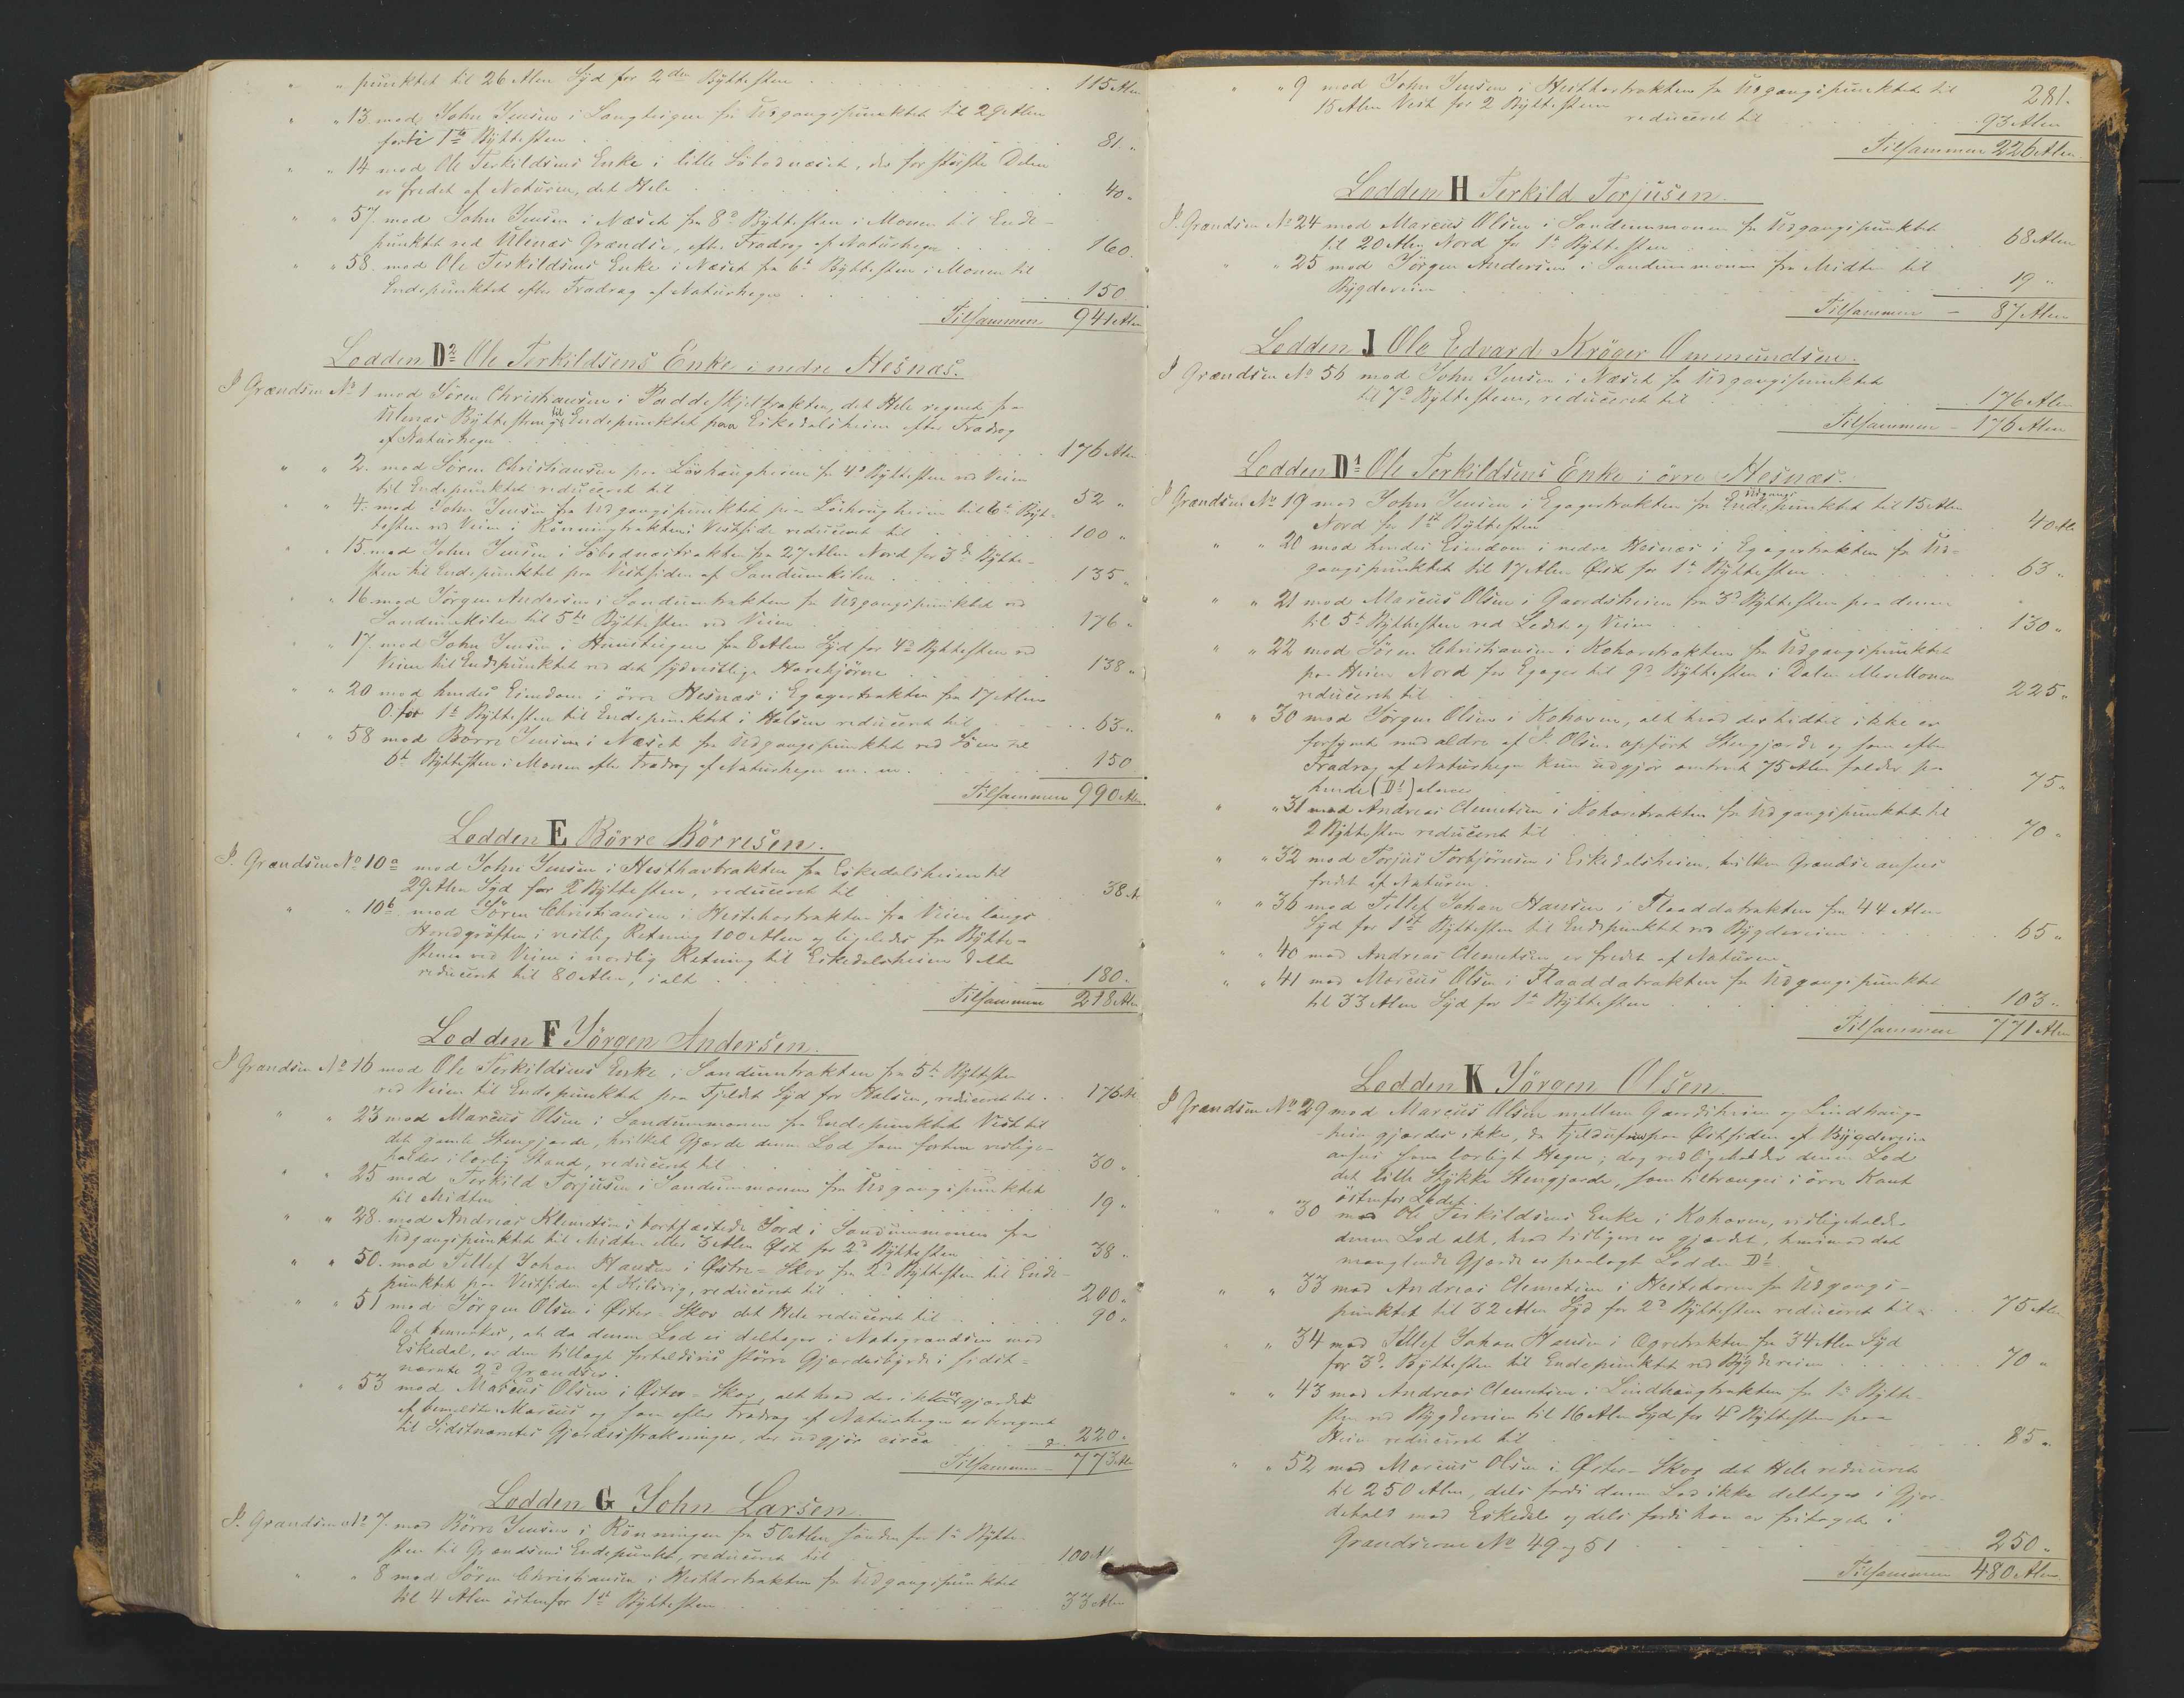 " " punktet til 26 Alen Syd for 2den Byttesten . . . 115 Alen
" " 13 mod John Jensen i Langteigen fra Udgangspunktet til 29 Alen
forbi 1te Byttesten . . . 81 "
" " 14 mod Ole Terkildsens Enke i lille Söbodnæset, der for störste Delen
er fredet af Naturen, det Hele . . . 40 "
" " 57. mod John Jensen i Næset fra 8d Byttesten i Monen til Ende-
punktet ved Ulenæs Grændse, efter Fradrag af Naturhegn . . . 160.
" " 58. mod Ole Terkildsens Enke i Næset fra 6t Byttesten i Monen til
Endepunktet efter Fradrag af Naturhegn . . . 150
Tilsammen 941 Alen
Lodden D2 Ole Terkildsens Enke i nedre Hesnæs.
I Grændsen No 1 mod Sören Christiansen i Paddeskjeltrakten, det Hele regnet fra
Ulenæs Byttesteng til Endepunktet paa Eskedalsheien efter Fradrag
af Naturhegn . . . 176 Alen
" " 2. mod Sören Christiansen paa Löshaugheien fra 4d Byttesten ved Veien
til Endepunktet reduceret til . . . 52 "
" " 4. mod John Jensen fra Udgangspunktet paa Löshaugheien til 6te Byt-
testen ved Veien i Rönningtraktens Vestside reduceret til . . . 100 "
" " 15 mod John Jensen i Söbodnæstrakten fra 27 Alen Nord for 3d Bytte-
sten til Endepunktet paa Vestsiden af Sandumkilen . . . 135 "
" " 16 mod Jörgen Andersen i Sandumtrakten fra Udgangspunktet ved
Sandumkilen til 5te Byttesten ved Veien . . . 176 "
" " 17. mod John Jensen i Humteigen fra 6 Alen Syd for 4d Byttesten ved
Veien til Endepunktet ved det sydvestlige Havehjörne . . . 138 "
" " 20 mod hendes Eiendom i övre Hesnæs i Egagertrakten fra 17 Alen
O. for 1te Byttesten til Endepunktet i Halsen reduceret til . . . 63 "
" " 58 mod Börre Jensen i Næset fra Udgangspunktet ved Söen til
6te Byttesten i Monen efter Fradrag af Naturhegn m. m. . . . 150
Tilsammen 990 Alen.
Lodden E Börre Börresen.
I. Grændsen No 10a mod John Jensen i Hesthavtrakten fra Eskedalsheien til
29 Alen Syd for 2 Byttesten, reduceret til . . . 38 A
" " 10b. mod Sören Christiansen i Hestehavtrakten fra Veien langs
Hovedgröften i vestlig Retning 100 Alen og ligeledes fra Bytte-
stenen ved Veien i nordlig Retning til Eskedalsheien dette
reduceret til 80 Alen, i alt . . . 180.
Tilsammen 218 Alen
Lodden F Jörgen Andersen.
I Grændsen No 16 mod Ole Terkildsens Enke i Sandumtrakten fra 5te Byttesten
ved Veien til Endepunktet paa Fjeldet Syd for Halsen, reduceret til . . 176 Al
" " 23 mod Marcus Olsen i Sandummonen fra Endepunktet Vest til
det gamle Stengjærde, hvilket Gjærde denne Lod som forhen vedlige-
holder i lovlig Stand, reduceret til . . . 30 "
" " 25 mod Terkild Torjusen i Sandummonen fra Udgangspunktet
til Midten . . . 19 "
" " 28. mod Andreas Klemetsens bortfæstede Jord i Sandummonen fra
Udgangspunktet til Midten eller 3 Alen Öst for 2d Byttesten . . . 38 "
" " 50. mod Tellef Johan Hansen i Östre-Skov fra 2d Byttesten til Ende-
punktet paa Vestsiden af Kilsvig, reduceret til . . . 200 "
" " 51 mod Jörgen Olsen i Öster-Skov det Hele reduceret til . . . 90 "
Det bemærkes, at da denne Lod ei deltager i Nabogrændsen mod
Eskedal, er den tillagt forholdsvis större Gjærdesbyrde i sidst-
nævnte 2d Grændser.
" " 53 mod Marcus Olsen i Öster-Skov, alt hvad der ikke er gjærdet
af bemeldte Marcus og som efter Fradrag af Naturhegn er beregnet
til Sidstnævntes Gjærdesstrækninger, der udgjör circa . . . 220 "
Tilsammen - 773 Alen
Lodden G John Larsen.
I. Grændsen No 7. mod Börre Jensen i Rönningen fra 50 Alen sönden for 1te Bytte-
sten til Grændsens Endepunkt, reduceret til . . . 100 Al
" " 8 mod Sören Christiansen i Hesthavtrakten fra Udgangspunktet
til 4 Alen östenfor 1st Byttesten . . . 33 Alen
281.
" " 9 mod John Jensen i Hesthavtrakten fra Udgangspunktet til
15 Alen Vest for 2 Byttesten reduceret til . . . 93 Alen
Tilsammen 226 Alen.
Lodden H Terkild Torjusen.
I. Grændsen No 24 mod Marcus Olsen i Sandummonen fra Udgangspunktet
til 20 Alen Nord for 1te Byttesten . . . 68 Alen
" " 25 mod Jörgen Andersen i Sandummonen fra Midten til
Bygdeveien . . . 19 "
Tilsammen - 87 Alen
Lodden J Ole Edvard Kröger Ommundsen.
I Grændsen No 56 mod John Jensen i Næset fra Udgangspunktet
til 7d Byttesten, reduceret til . . . 176 Alen
Tilsammen - 176 Alen
Lodden D1 Ole Terkildsens Enke i övre Hesnæs.
I Grændsen No 19 mod John Jensen i Egagertrakten fra Udgangspunktet til 15 Alen
Nord for 1st Byttesten . . . 40 Al
" " 20 mod hendes Eiendom i nedre Hesnæs i Egagertrakten fra Ud-
gangspunktet til 17 Alen Öst for 1te Byttesten . . . 63 "
" " 21 mod Marcus Olsen i Gaardsheien fra 3d Byttesten paa denne
til 5te Byttesten ved Ledet og Veien . . . 130 "
" " 22 mod Sören Christiansen i Kohavetrakten fra Udgangspunktet
paa Heien Nord for Egager til 9d Byttesten i Dalen eller Monen
reduceret til . . . 225 "
" " 30 mod Jörgen Olsen i Kohaven, alt hvad der hidtil ikke er
forsynet med ældre af J. Olsen opfört Stengjærde og som efter
Fradrag af Naturhegn kun udgjör omtrent 75 Alen falder paa
hende (D1) alene . . . 75 "
" " 31 mod Andreas Clemetsen i Kohavetrakten fra Udgangspunktet til
2 Byttesten reduceret til . . . 70 "
" " 32 mod Torjus Torbjörnsen i Eskedalsheien, hvilken Grændse ansees
fredet af Naturen.
" " 36 mod Tellef Johan Hansen i Flaaddatrakten fra 44 Alen
Syd for 1st Byttesten til Endepunktet ved Bygdeveien . . . 65 "
" " 40 mod Andreas Clemetsen er fredet af Naturen
" " 41 mod Marcus Olsen i Flaaddatrakten fra Udgangspunktet
til 33 Alen Syd for 1te Byttesten . . . 103 "
Tilsammen 771 Alen
Lodden K Jörgen Olsen.
I Grændsen No 29 mod Marcus Olsen mellem Gaardsheien og Lindhaug-
heien gjærdes ikke, da Fjeldufsen paa Östsiden af Bygdeveien
ansees som lovligt Hegn; dog vedligeholder denne Lod
det lille Stykke Stengjærde, som tiltrænges i övre Kant
östenfor Ledet.
" " 30 mod Ole Terkildsens Enke i Kohaven, vedligeholder
denne Lod alt, hvad tidligere er gjærdet, hvorimod det
manglende Gjærde er paalagt Lodden D1
" " 33 mod Andreas Clemetsen i Hestehaven fra Udgangs-
punktet til 32 Alen Syd for 2d Byttesten reduceret til . . 75 Alen
" " 34 mod Tellef Johan Hansen i Ögretrakten fra 34 Alen Syd
for 3d. Byttesten til Endepunktet ved Bygdeveien . . . 70 "
" " 43 mod Andreas Clemetsen i Lindhaugtrakten fra 1te Bytte-
sten ved Bygdeveien til 16 Alen Syd for 4d Byttesten paa
Heien reduceret til . . . 85 "
" " 52 mod Marcus Olsen i Öster-Skov det Hele reduceret
til 250 Alen, dels fordi denne Lod ikke deltager i Gjær-
dehold med Eskedal og dels fordi han er fritaget i
Grændserne No 49 og 51 . . . 250 "
Tilsammen 480 Alen